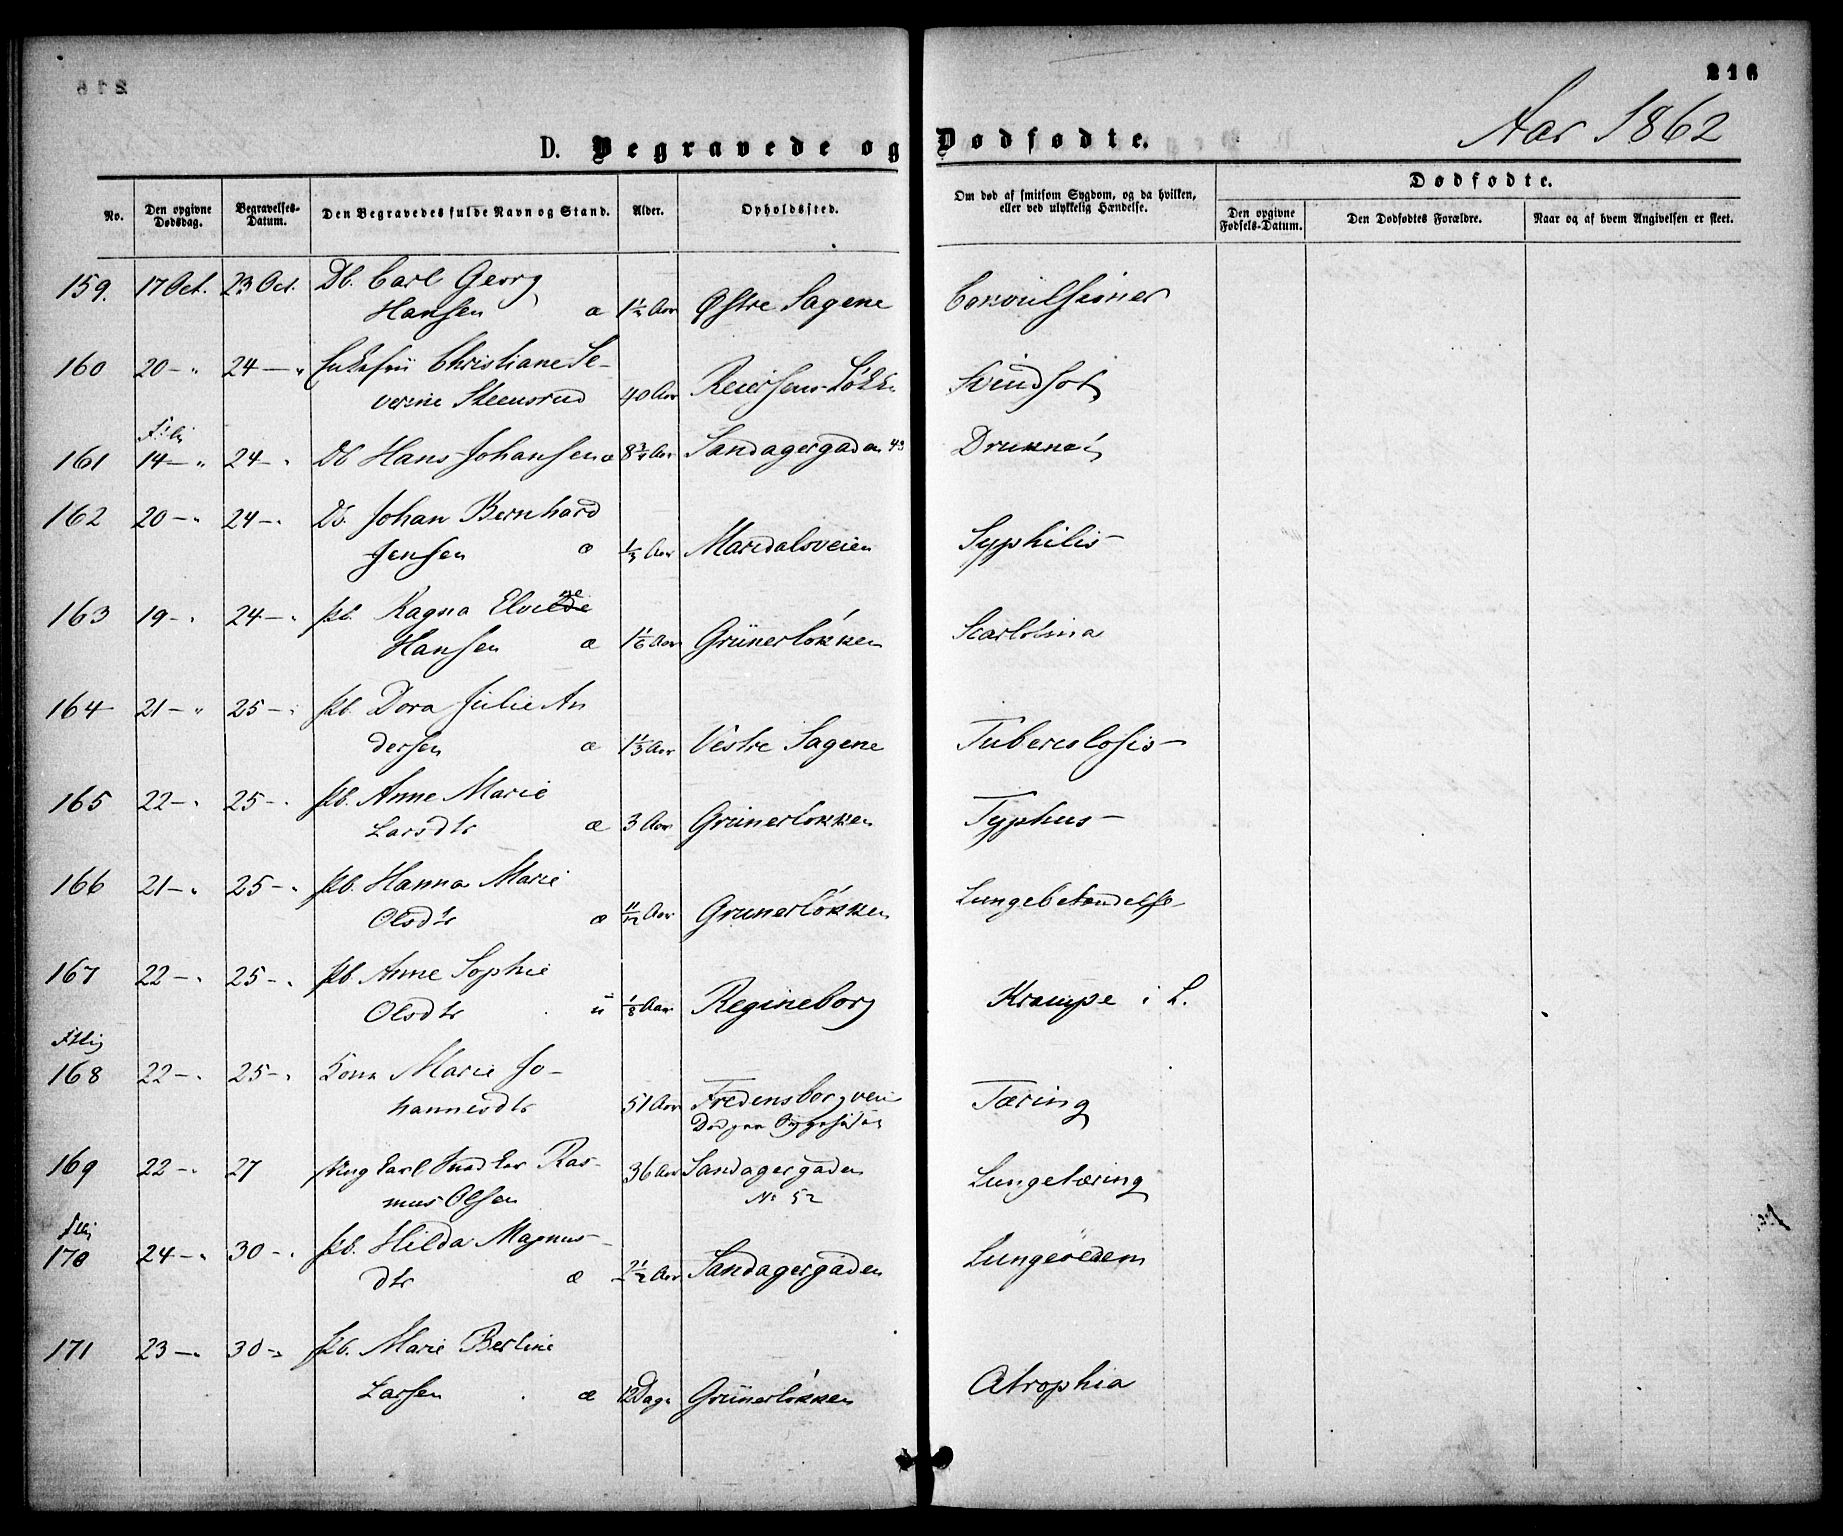 216
Aar 1862
D. Begravede og Dødfødte.
No.
Den opgivne Dødsdag.
Begravelses-Datum.
Den Begravedes fulde Navn og Stand.
Alder.
Opholdssted.
Om død af smitsom Sygdom, og da hvilken, eller ved ulykkelig Hændelse.
Dødfødte.
Den opgivne Fødsels-Datum.
Den Dødfødtes Forældre.
Naar og af hvem Angivelsen er skeet.
159. 17 Oct. 23 Oct. Db. Carl Georg
Hansen æ 1½ Aar Østre Sagene Convulsioner
160 20 – " 24 – " Christiane Se-
verine Steensrud 40 Aar Reiersens Løkke Svindsot
161 14 – " 24 – " Db Hans Johansen æ 8¾ Aar Sandagergaden 43 Druknet
162 20 – " 24 – " Db. Johan Bernhard
Jensen æ ⅓ Aar Maridalsveien Syphilis
163 19 – " 24 – " Pb. Ragna Elvine
Hansen æ 1⅙ Aar Grünerløkken Scarlatina
164 21 – " 25 – " Pb. Dora Julie An
dersen æ 1⅓ Aar Vestre Sagene Tuberculosis
165 22 – " 25 – " Pb. Anne Marie
Larsdtr æ 3 Aar Grünerløkken Typhus
166 21 – " 25 – " Pb. Hanna Marie
Olsdtr æ 11/12 Aar Grünerløkken Lungebetændelse
167 22 – " 25 – " Pb. Anne Sophie
Olsdtr u ⅛ Aar Regineborg Krampe i L.
168 22 – " 25 – " Kone Marie Jo-
hannesdtr 51 Aar Fredensborgvei Tæring
Død paa Sygehuset
169 22 – " 27 Ung Carl Ras-
mus Olsen 36 Aar Sandagergaden Lungetæring
No 52
170 24 – " 30 – " Pb. Hilda Magnus-
dtr æ 2½ Aar Sandagergaden Lungeødem
171 23 – " 30 – " Pb. Marie Berline
Larsen æ 12 Dage Grünerløkken Atrophia